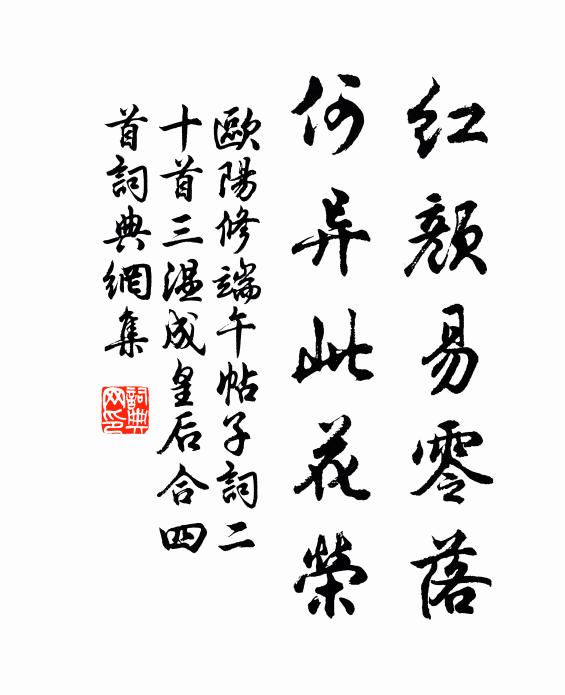 红颜易零落
何异此花榮
歐陽修端午帖子詞二
十首三温成皇后合四
首詞典網集
詞典
网印